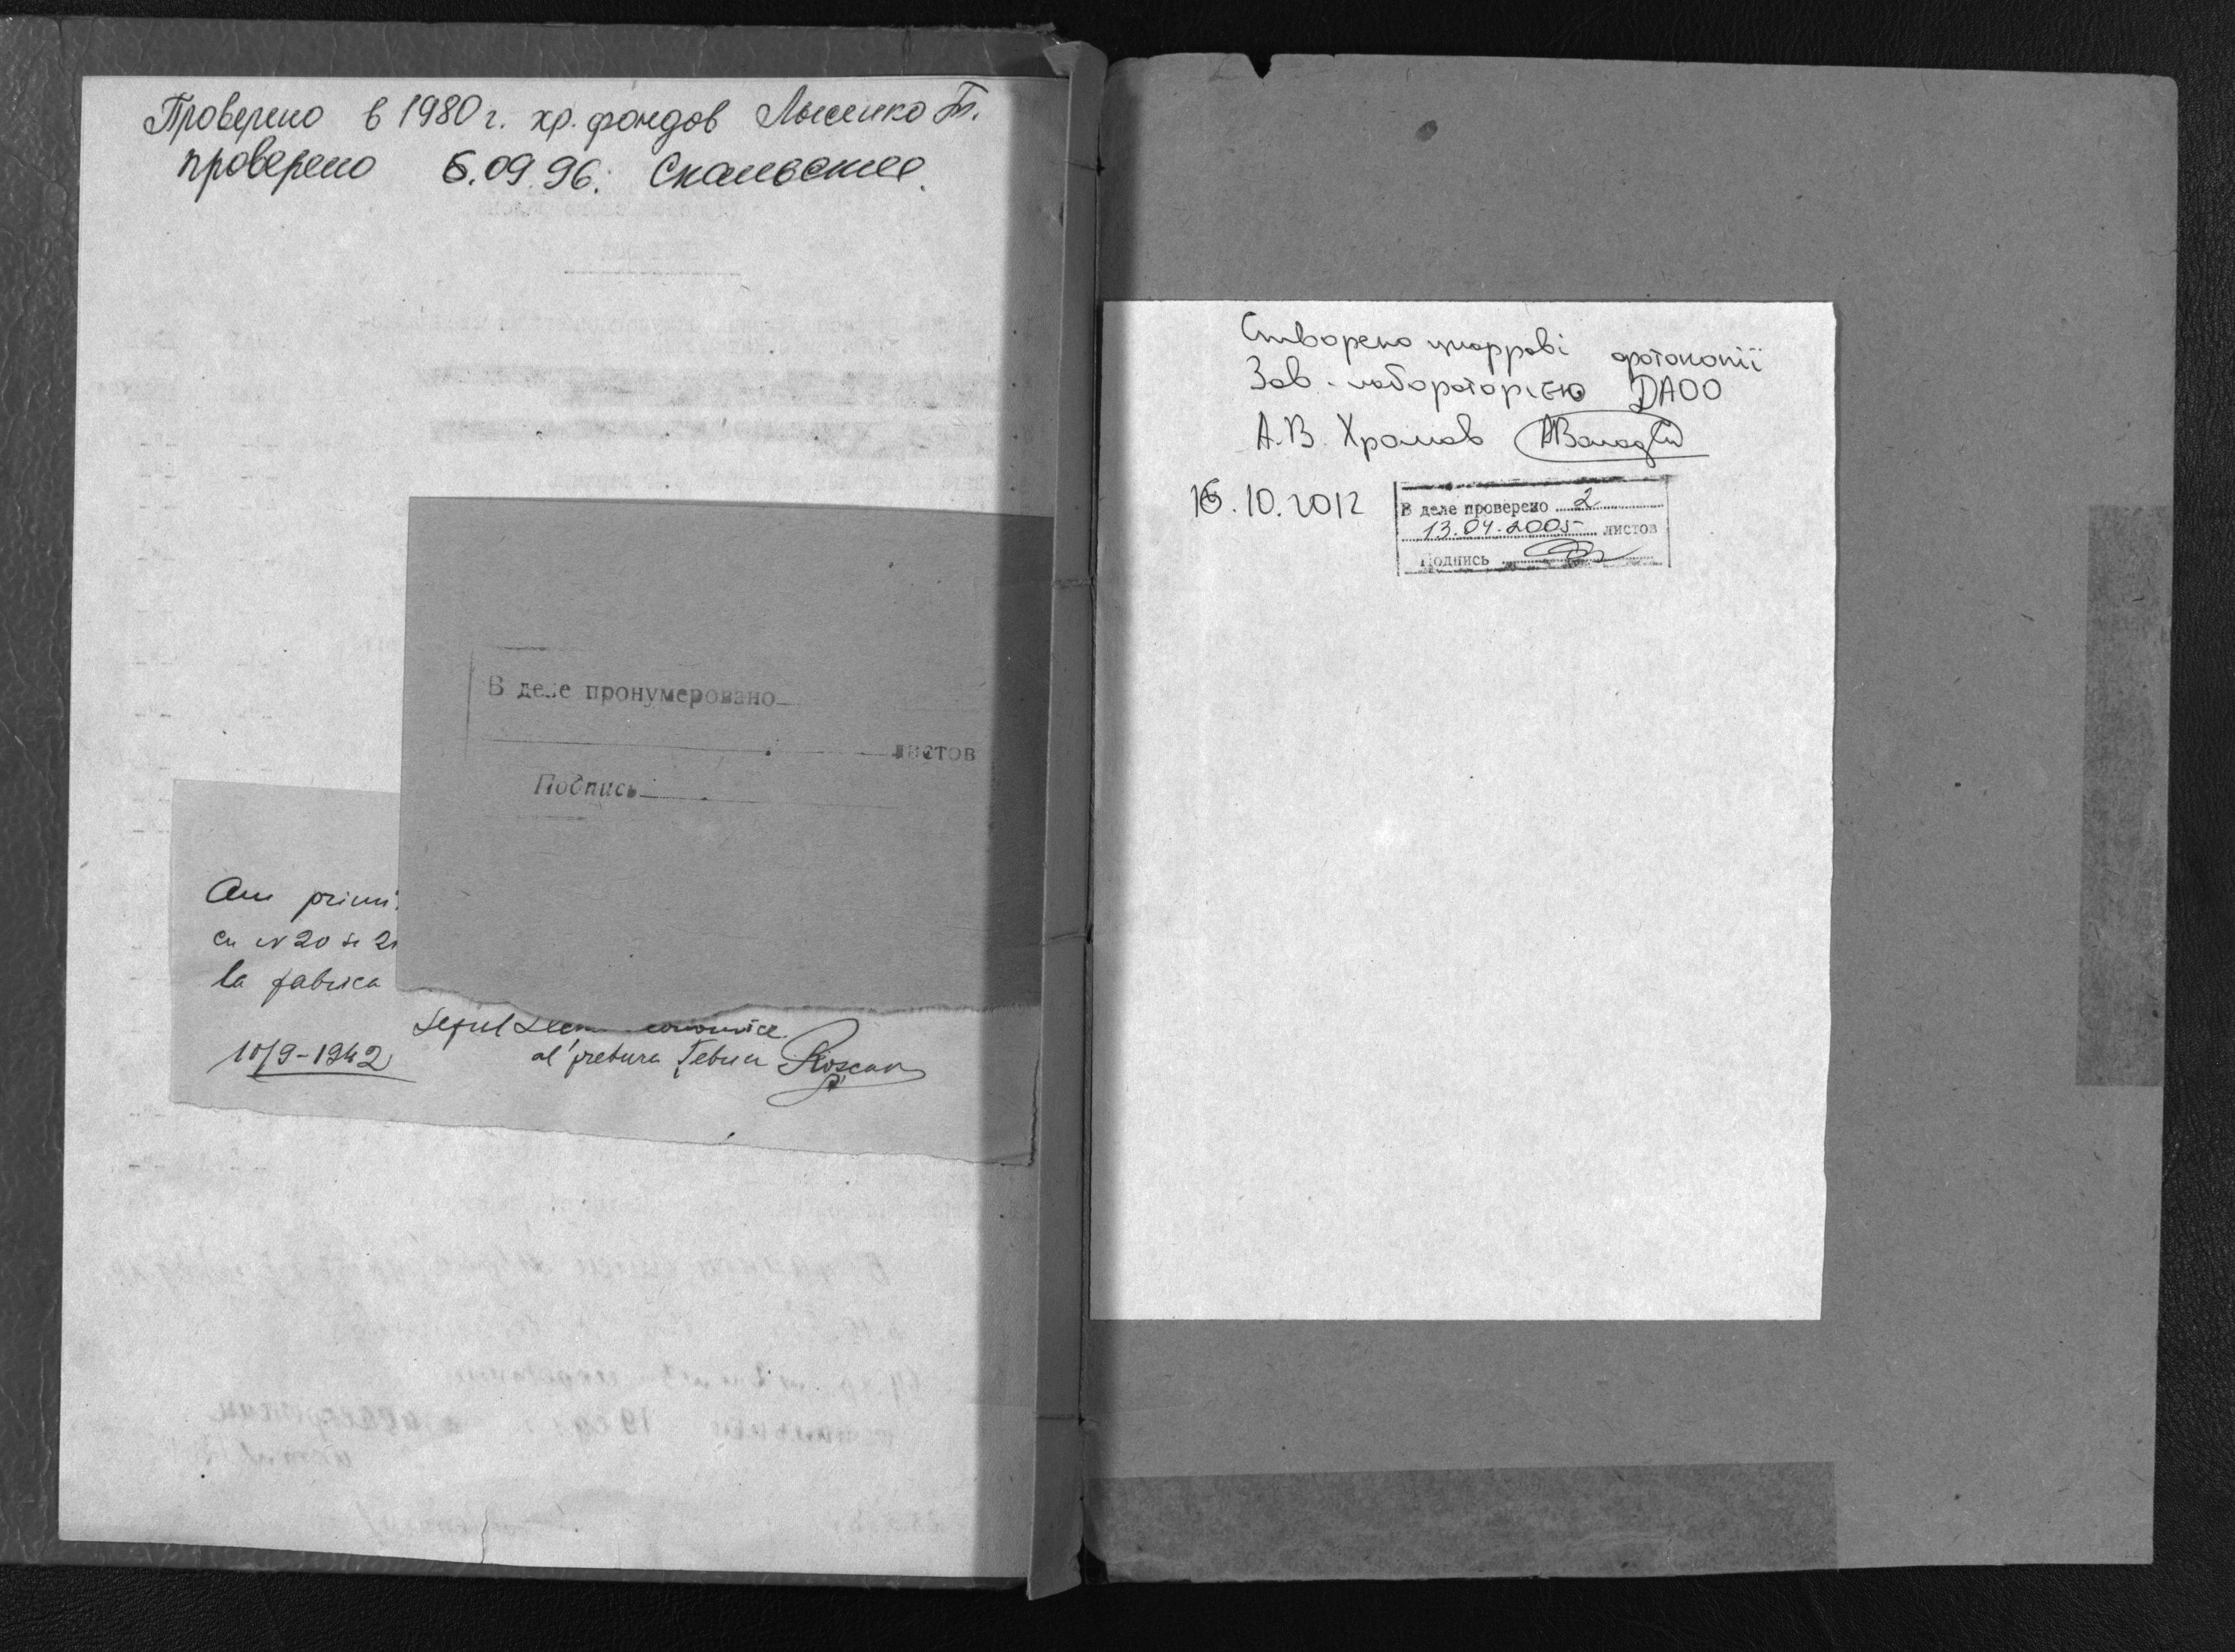 Проверено в 1980 г. хр. фондов Лысенко Т.
проверено 6.09.96.
В деле пронумеровано
листов
Подпись
Am primi
cu N 20 si 21
la fabrica
Seful
10/9-1942
al pretura
Створено цифрові фотокопії
Зав. лабораторією ДАОО
А.В. Храмов
10.2012
В деле проверено 2
13.04.2005 листов
Подпись